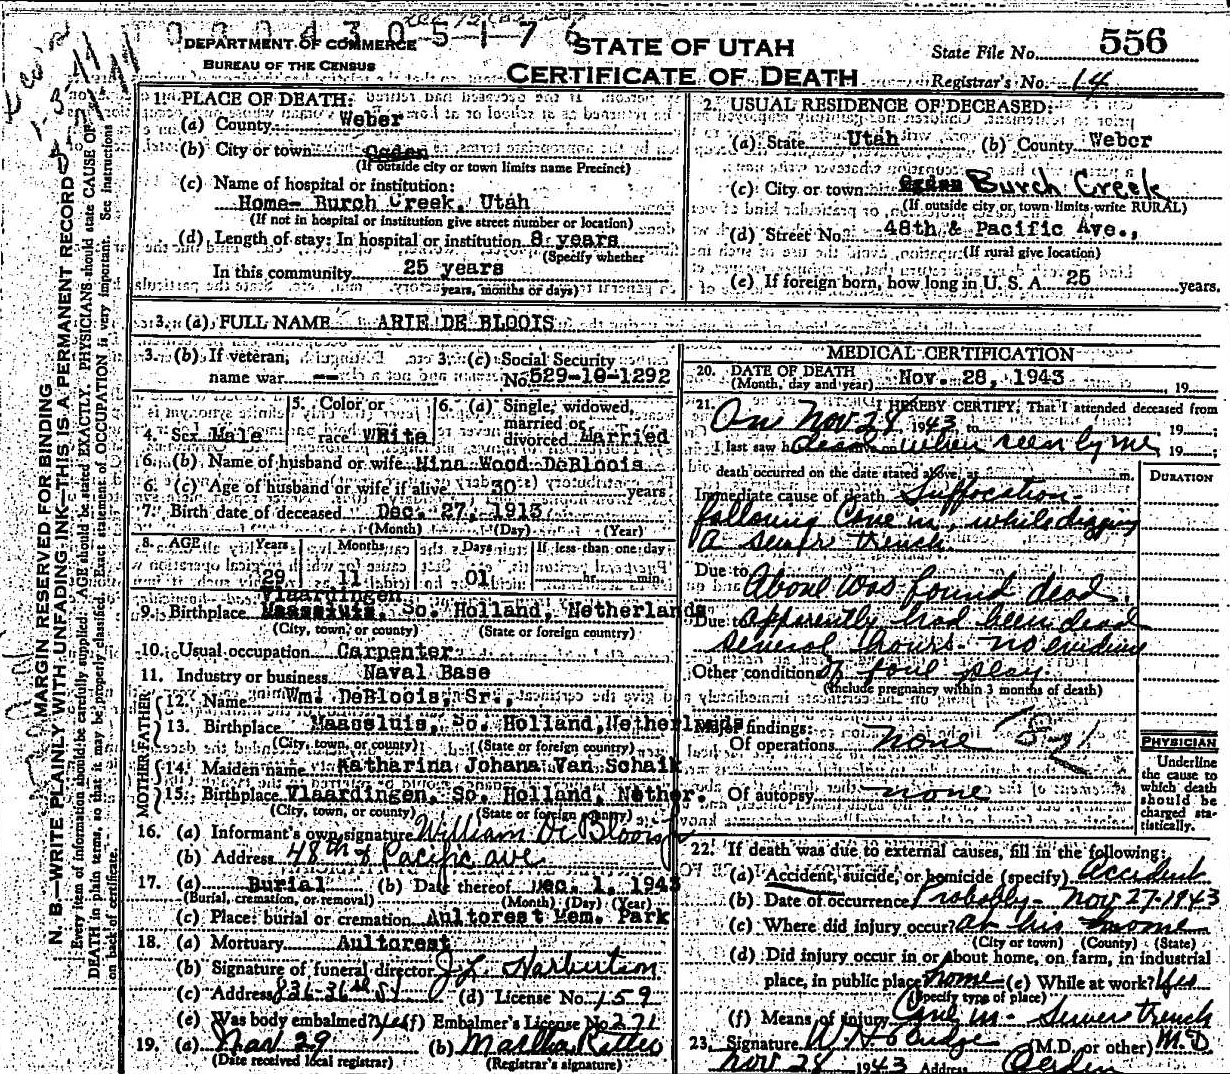 0 0 0 4 3 0 5 1 7 6
DEPARTMENT OF COMMERCE
BUREAU OF THE CENSUS
STATE OF UTAH
CERTIFICATE OF DEATH
State File No. 556
Registrar's No. 14
MARGIN RESERVED FOR BINDING
N. B.—WRITE PLAINLY WITH UNFADING INK—THIS IS A PERMANENT RECORD
Every item of information should be carefully supplied. AGE should be stated EXACTLY. PHYSICIANS should state CAUSE OF
DEATH in plain terms, so that it may be properly classified. Exact statement of OCCUPATION is very important. See instructions
on back of certificate.
1. PLACE OF DEATH:
(a) County Weber
(b) City or town Ogden
(If outside city or town limits name Precinct)
(c) Name of hospital or institution:
Home- Burch Creek, Utah
(If not in hospital or institution give street number or location)
(d) Length of stay: In hospital or institution 8 years
(Specify whether
In this community 25 years
years, months or days)
2. USUAL RESIDENCE OF DECEASED:
(a) State Utah (b) County Weber
(c) City or town Ogden Burch Creek
(If outside city or town limits write RURAL)
(d) Street No. 48th & Pacific Ave.,
(If rural give location)
(e) If foreign born, how long in U. S. A. 25 years.
3. (a) FULL NAME ARIE DE BLOOIS
3. (b) If veteran, name war --
3. (c) Social Security No. 529-10-1292
4. Sex Male
5. Color or race White
6. (a) Single, widowed, married or divorced Married
6. (b) Name of husband or wife Mina Wood DeBloois
6. (c) Age of husband or wife if alive 30 years
7. Birth date of deceased Dec. 27, 1913
(Month) (Day) (Year)
8. AGE Years Months Days If less than one day
29 11 01 hr. min.
Vlaardingen
9. Birthplace Maassluis, So. Holland, Netherlands
(City, town, or county) (State or foreign country)
10. Usual occupation Carpenter
11. Industry or business Naval Base
FATHER
12. Name Wm. DeBloois, Sr.,
13. Birthplace Maassluis, So. Holland, Netherlands
(City, town, or county) (State or foreign country)
MOTHER
14. Maiden name Katharina Johana Van Schaik
15. Birthplace Vlaardingen, So. Holland, Nether.
(City, town, or county) (State or foreign country)
16. (a) Informant's own signature William De Bloois Jr
(b) Address 48th & Pacific ave
17. (a) Burial (b) Date thereof Dec. 1, 1943
(Burial, cremation, or removal) (Month) (Day) (Year)
(c) Place: burial or cremation Aultorest Mem. Park
18. (a) Mortuary Aultorest
(b) Signature of funeral director J. L. Harbertson
(c) Address 836-36th St (d) License No. 159
(e) Was body embalmed? Yes (f) Embalmer's License No. 271
19. (a) Nov 29 (b) Martha Ritter
(Date received local registrar) (Registrar's signature)
MEDICAL CERTIFICATION
20. DATE OF DEATH Nov. 28, 1943, 19
(Month, day and year)
21. I HEREBY CERTIFY, That I attended deceased from
On Nov 28 1943 to 19 ;
I last saw h dead when seen by me, 19 ;
death occurred on the date stated above, at m.
DURATION
Immediate cause of death Suffocation-
following Cave in, while digging
a sewer trench.
Due to Above was found dead.
Due to Apparently had been dead
several hours- no evidence
Other conditions of foul play
(Include pregnancy within 3 months of death)
Major findings:
Of operations none
Of autopsy none
PHYSICIAN
Underline
the cause to
which death
should be
charged sta-
tistically.
22. If death was due to external causes, fill in the following:
(a) Accident, suicide, or homicide (specify) Accident
(b) Date of occurrence Probably- Nov 27-1943
(c) Where did injury occur? at his home
(City or town) (County) (State)
(d) Did injury occur in or about home, on farm, in industrial
place, in public place? home (e) While at work? Yes
(Specify type of place)
(f) Means of injury Cave in- Sewer trench
23. Signature (M.D. or other) M.D.
Nov 28 1943 Address Ogden